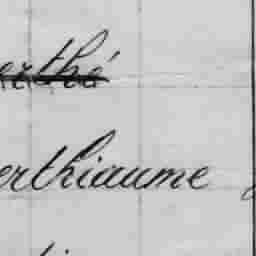 erthé
erthiaume